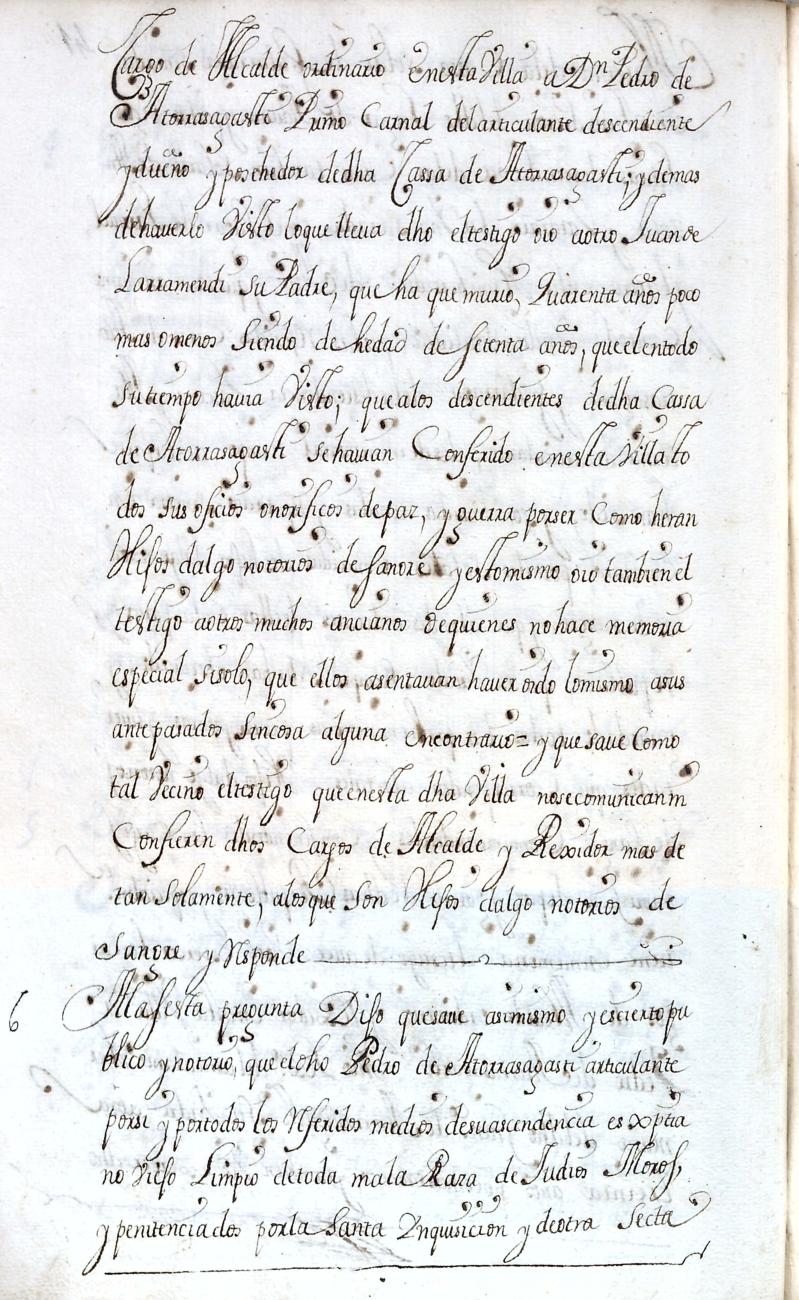 Cargo de Alcalde ordinario enesta Villa a Dn Pedro de
Atorrasagasti Primo Carnal delarticulante descendiente
y dueño y poschedor dedha Cassa de Atorrasagasti; y demas
dehaverlo Visto loque lleua dho eltestigo oio aotro Juan de
Larramendi su Padre, que ha que murio, Quarenta años poco
mas omenos Siendo de hedad de setenta años, que el entodo
su tiempo hauia Visto; que alos descendientes dedha Cassa
de Atorrasagasti sehauian Conferido enesta Villa to
dos sus oficios onorificos depaz, y guerra porser Como heran
Hijos dalgo notorios de sangre y estomismo oio tambien el
testigo aotros muchos ancianos dequienes nohace memoria
especial sisolo, que ellos asentauan haver oido lomismo asus
antepasados Sincosa alguna encontrario= y que saue Como
tal Vecino eltestigo que enesta dha Villa nosecomunican ni
Confieren dhos Cargos de Alcalde y Rexidor mas de
tan Solamente, alosque son Hijos dalgo notorios de
Sangre y Responde
6 Ala sexta pregunta Dijo quesaue asimismo y escierto pu
blico y notorio, que eldho Pedro de Atorrasagasti articulante
porsi y portodos los Referidos medios desuascendencia es xptia
no Viejo Limpio detoda mala Raza de Judios Moros,
y penitenciados porla Santa Ynquisicion y deotra Secta